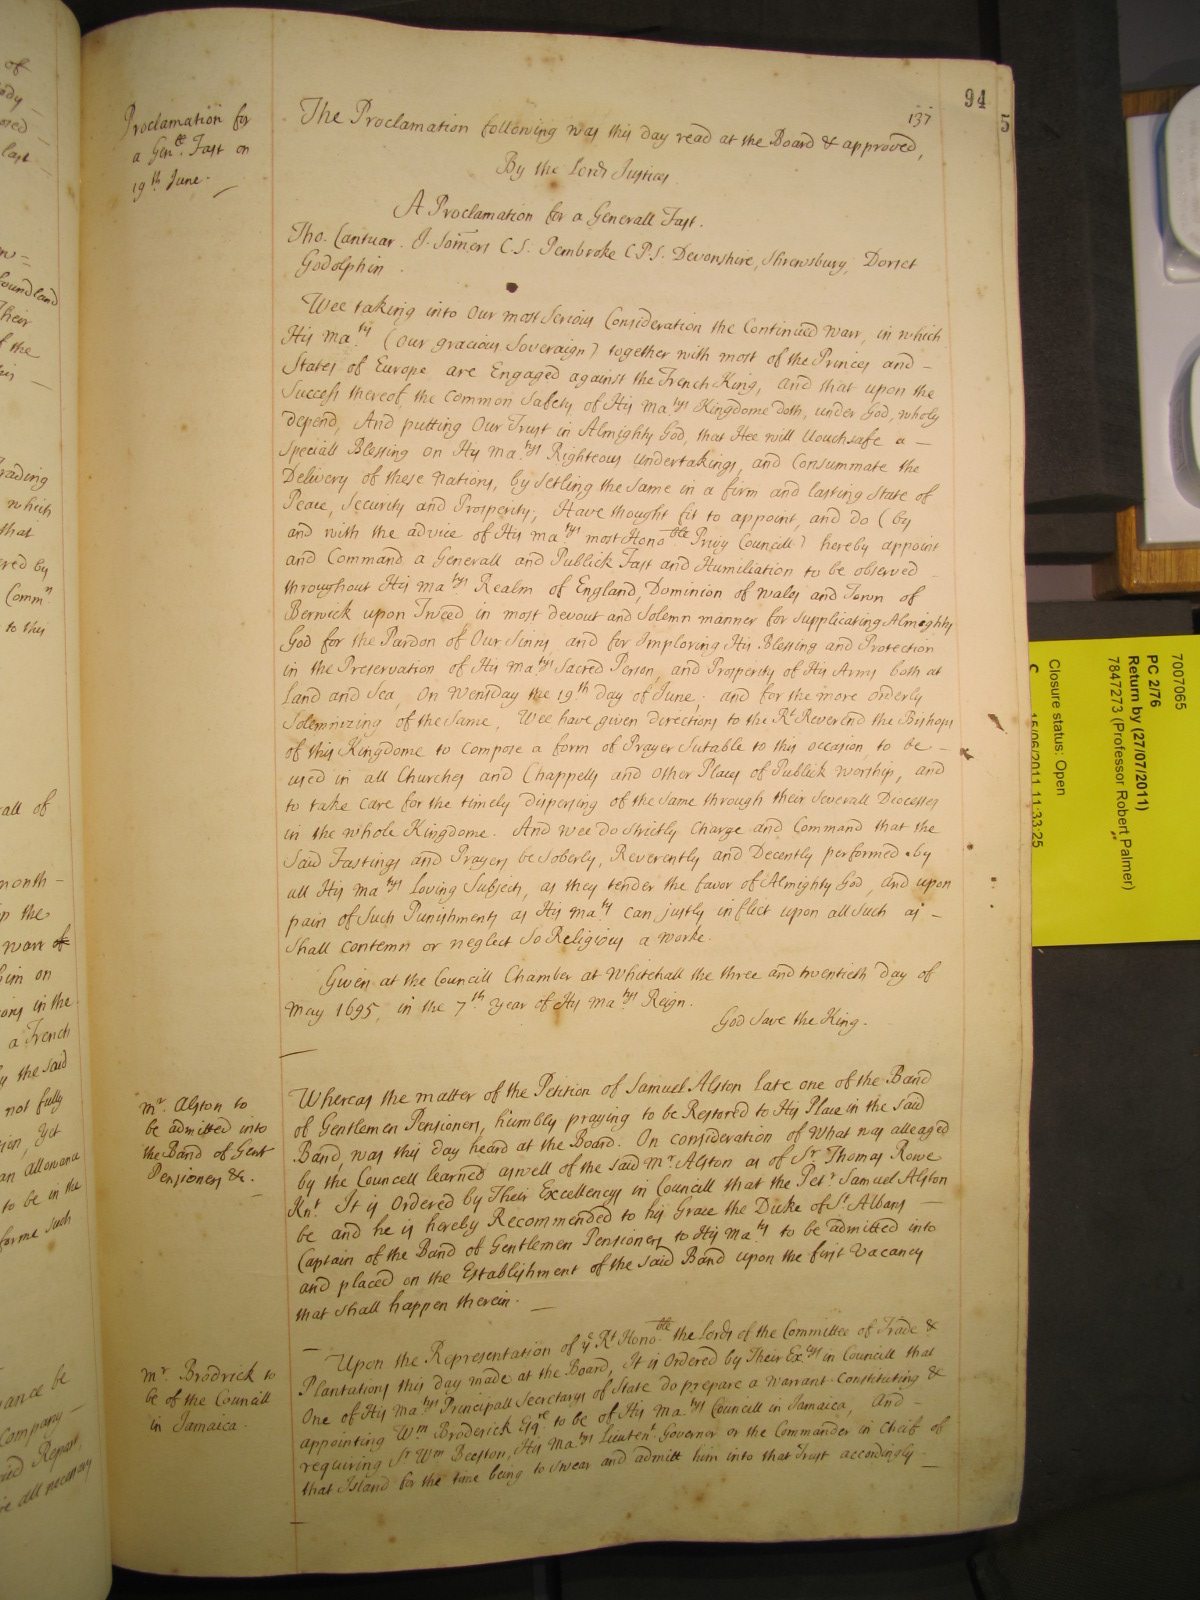 94
137
5
Proclamation for
a Gen.ll Fast on
19th June.
The Proclamation following was this day read at the Board & approved,
By the Lords Justices
A Proclamation for a Generall Fast.
Tho. Cantuar. J. Som̄ers C.S. Pembroke C.P.S. Devonshire, Shrewsbury, Dorset
Godolphin
Wee taking into Our most Serious Consideration the Continued Warr, in which
His Ma.ty (Our gracious Soveraign) together with most of the Princes and –
States of Europe are Engaged against the French King, and that upon the
Success thereof, the Common Safety of His Ma.tys Kingdome doth, under God, wholy
depend, And putting Our Trust in Almighty God, that Hee will Vouchsafe a —
Speciall Blessing on His Ma.tys Righteous undertakings, and Consummate the
Delivery of these Nations, by setling the Same in a firm and lasting State of
Peace, Security and Prosperity; Have thought fit to appoint, and do (by
and with the advice of His Ma.tys most Hono.ble Privy Councill) hereby appoint
and Command a Generall and Publick Fast and Humiliation to be observed
throughout His Ma.tys Realm of England, Dominion of Wales and Town of
Berwick upon Tweed in most devout and Solemn manner for Supplicating Almighty
God for the Pardon of Our Sinns, and for Imploring His Blessing and Protection
in the Preservation of His Ma.tys Sacred Person, and Prosperity of His Arms both at
Land and Sea, On Wensday the 19th Day of June; and for the more orderly
Solemnizing of the Same, Wee have given directions to the Rt Reverend the Bishops
of this Kingdome to Compose a form of Prayer Sutable to this occasion, to be –
used in all Churches and Chappells and other Places of Publick Worship, and
to take Care for the timely dispersing of the Same through their Severall Diocesses
in the whole Kingdome. And wee do Strictly Charge and Command that the
Said Fastings and Prayers be Soberly, Reverently and Decently performed by
all His Ma.tys Loving Subjects, as they tender the favor of Almighty God, and upon
pain of Such Punishments as His Ma.ty can justly inflict upon all Such as –
Shall contemn or neglect So Religious a Worke.
Given at the Councill Chamber at Whitehall the three and twentieth day of
May 1695, in the 7th year of His Ma.tys Reign.
God Save the King.
Mr. Alston to
be admitted into
the Band of Gent
Pensioners &c.
Whereas the matter of the Petition of Samuel Alston late one of the Band
of Gentlemen Pensioners, humbly praying to be Restored to His Place in the said
Band, was this day heard at the Board. On consideration of What was alleaged
by the Councell learned aswell of the said Mr. Alston as of Sr. Thomas Rowe
Knt. It is Ordered by Their Excellencys in Councill that the Petr. Samuel Alston
be and he is hereby Recommended to his Grace the Duke of St. Albans —
Captain of the Band of Gentlemen Pensioners to His Ma.ty to be admitted into
and placed on the Establishment of the said Band upon the first Vacancy
that shall happen therein. —
Mr. Brodrick to
be of the Councill
in Jamaica.
Upon the Representation of ye Rt Hono.ble the Lords of the Committee of Trade &
Plantations this day made at the Board, It is Ordered by Their Ex.cys in Councill that
One of His Ma.tys Principall Secretarys of State do prepare a Warrant Constituting &
appointing Wm Broderick Esqre to be of His Ma.tys Councill in Jamaica, And –
requiring Sr Wm Beeston, His Ma.tys Lieuten.t Governor or the Commander in Cheif of
that Island for the time being to Swear and admitt him into that Trust accordingly –
7007065
PC 2/76
Return by (27/07/2011)
7847273 (Professor Robert Palmer)
Closure status: Open
15/06/2011 11:33:25
of
last
foundland
Their
of the
trading
which
that
Comm.n
to this
all of
month –
the
warr
him on
in the
a French
by the said
not fully
yet
an allowance
to be in the
forme such
be
Company
Report
all necessary